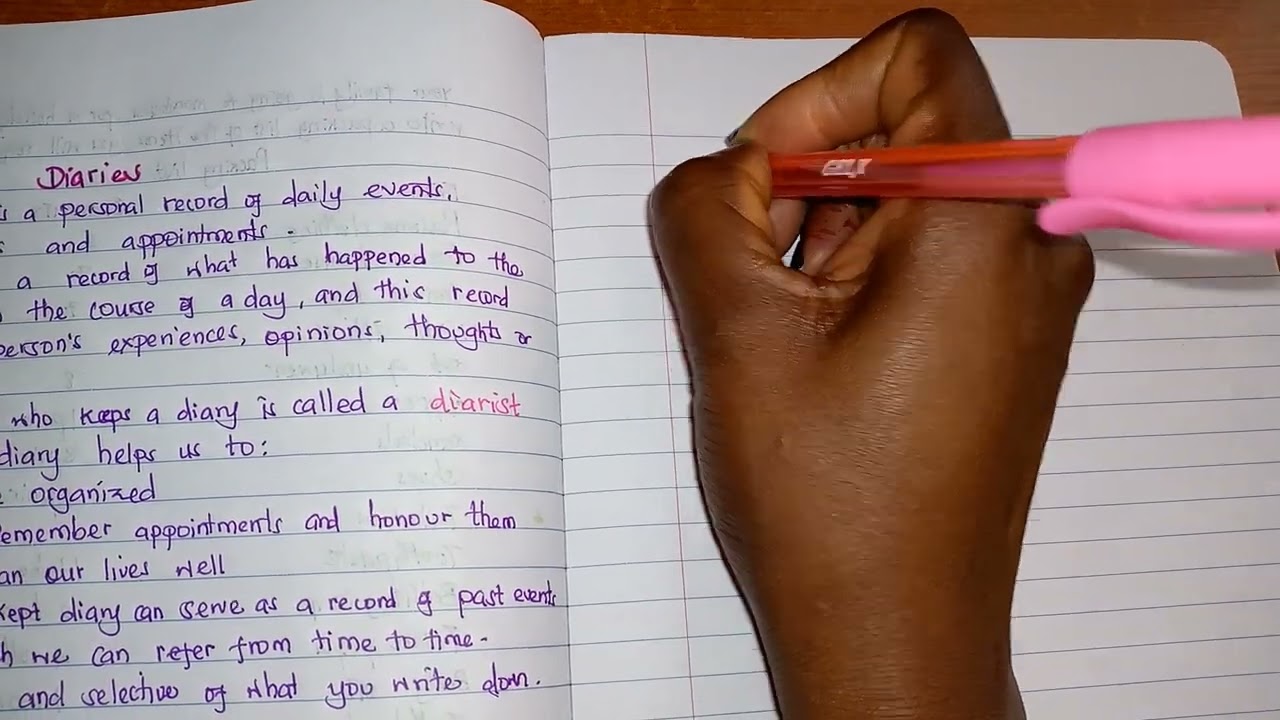 Diaries
a personal record of daily events,
and appointments.
a record of what has happened to the
the course of a day, and this record
person's experiences, opinions, thoughts or
who keeps a diary is called a diarist
diary helps us to:
organized
emember appointments and honour them
an our lives well
kept diary can serve as a record of past events
h we can refer from time to time.
and selective of what you write down.